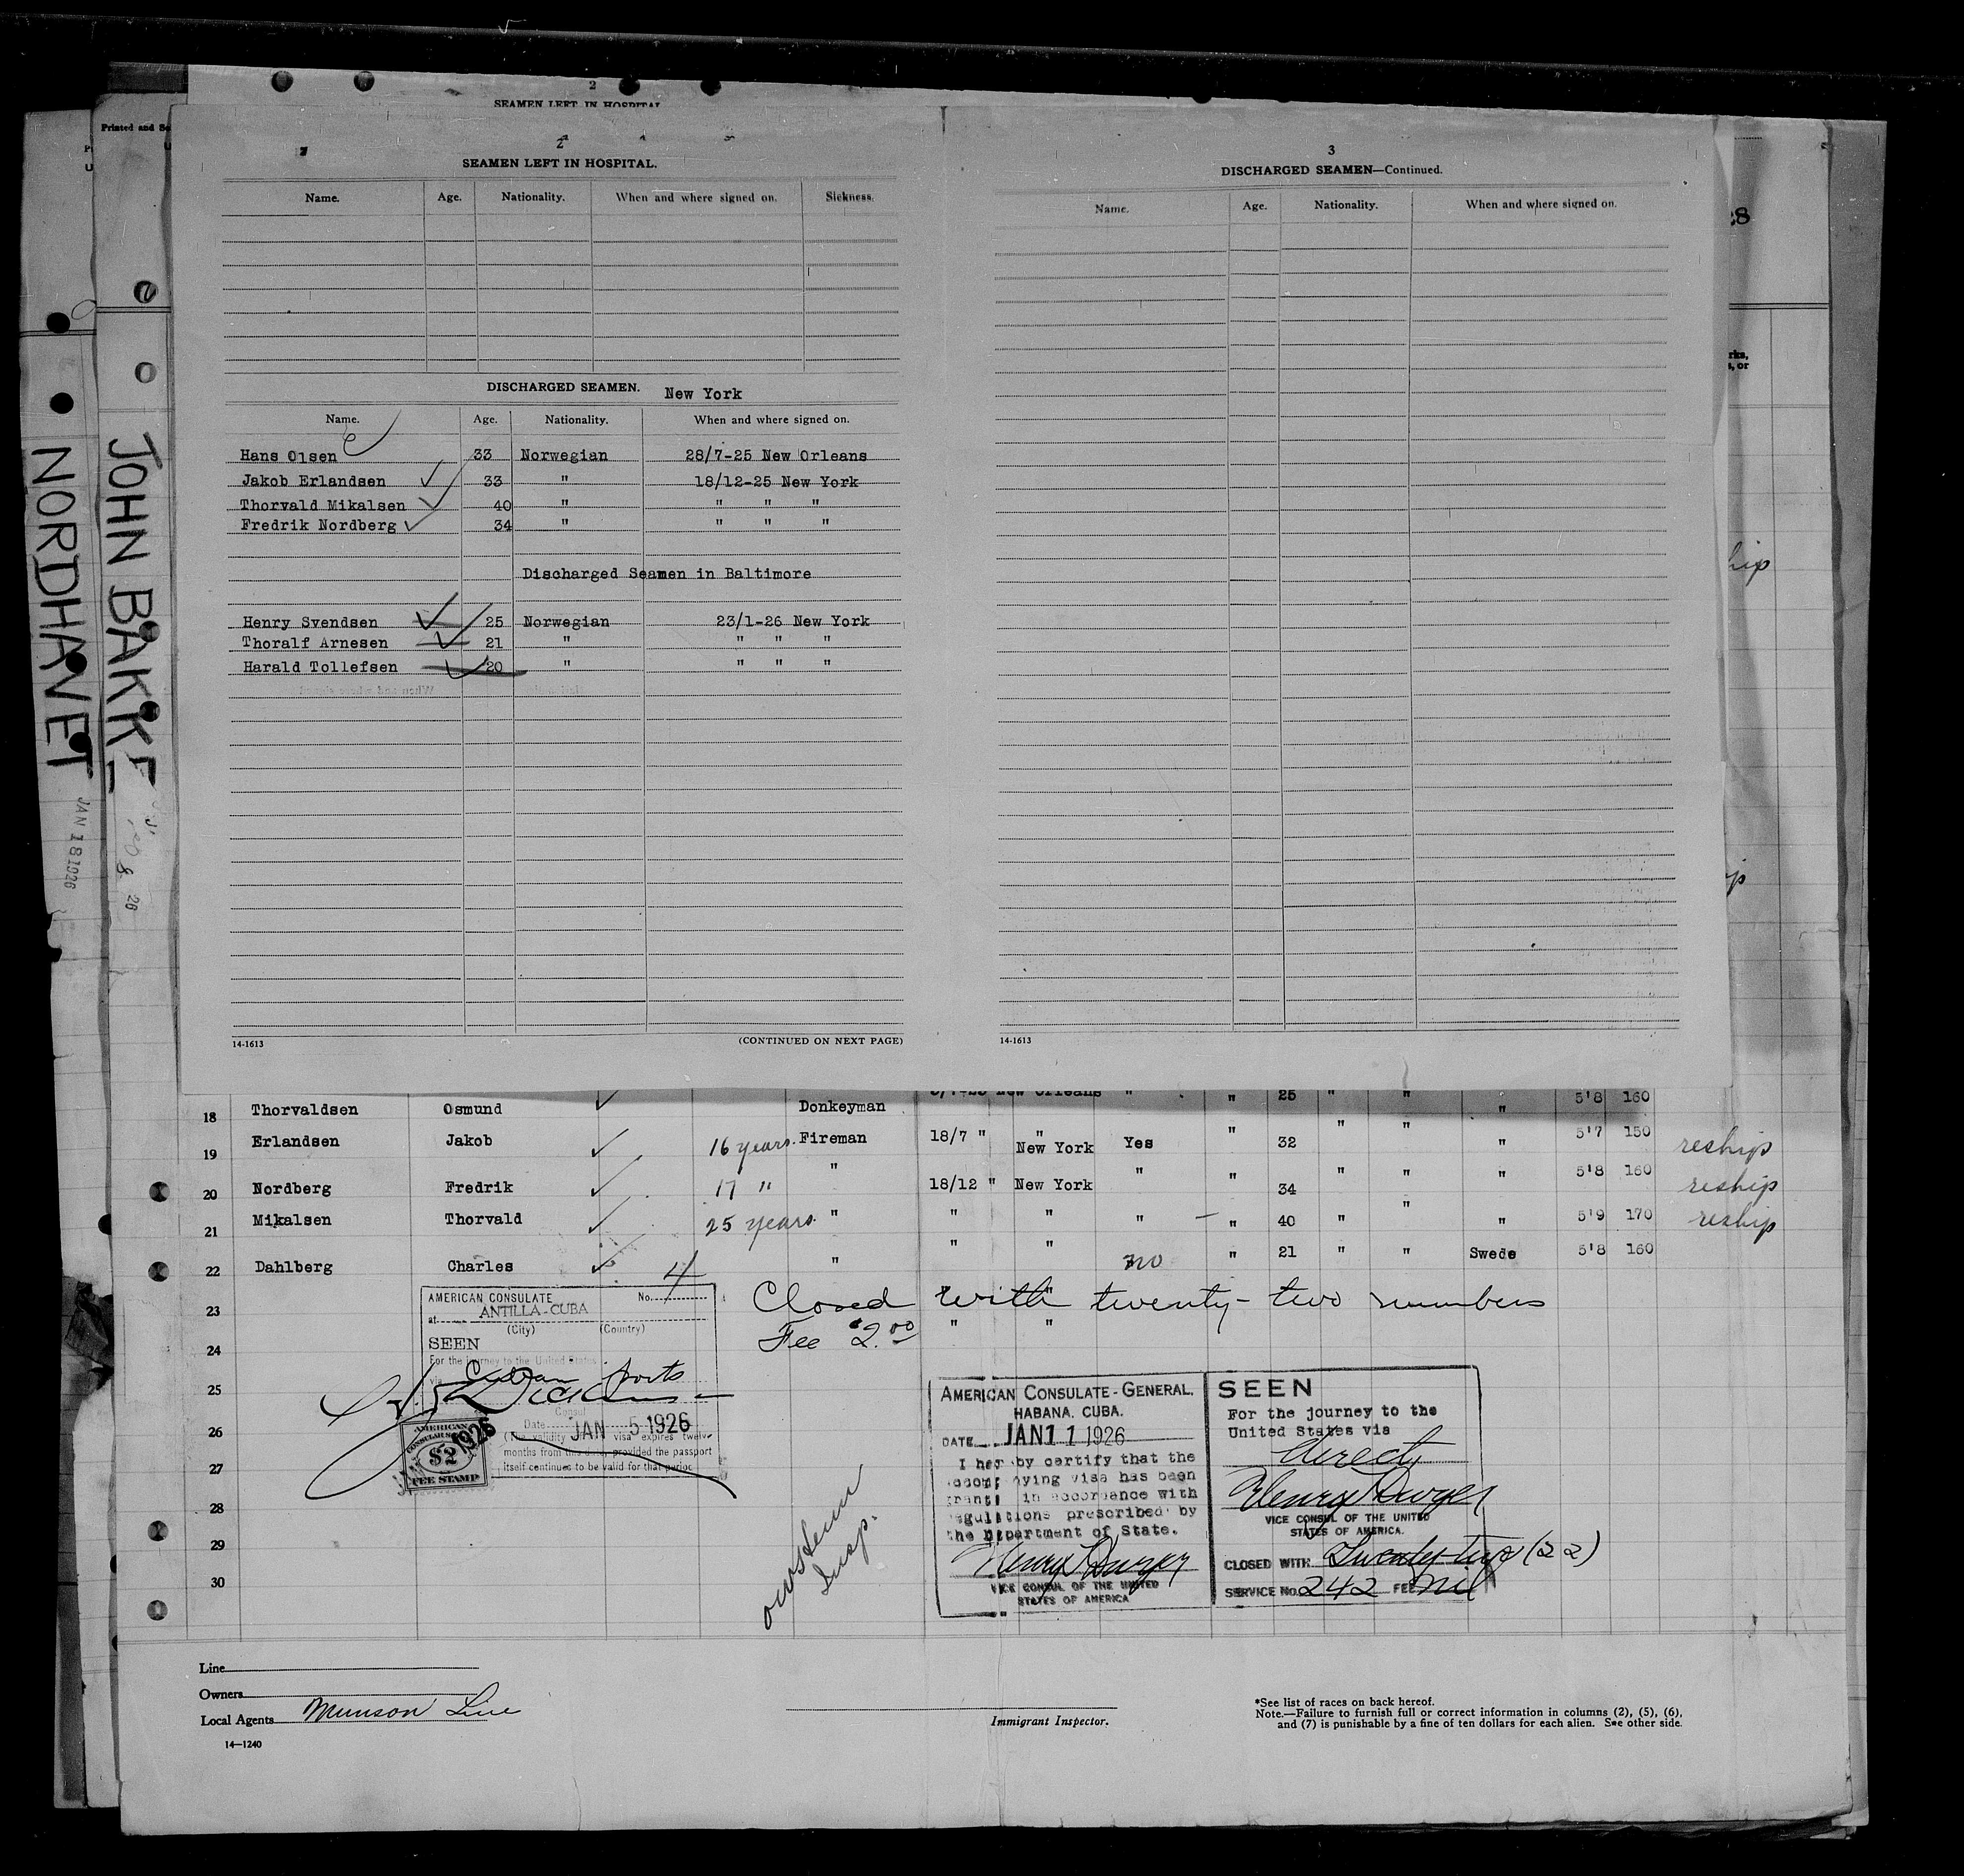 2
SEAMEN LEFT IN HOSPITAL
Printed and
2
SEAMEN LEFT IN HOSPITAL.
Name. Age. Nationality. When and where signed on. Sickness.
DISCHARGED SEAMEN. New York
Name. Age. Nationality. When and where signed on.
Hans Olsen 33 Norwegian 28/7-25 New Orleans
Jakob Erlandsen 33 " 18/12-25 New York
Thorvald Mikalsen 40 " " " "
Fredrik Nordberg 34 " " " "
Discharged Seamen in Baltimore
Henry Svendsen 25 Norwegian 23/1-26 New York
Thoralf Arnesen 21 " " " "
Harald Tollefsen 20 " " " "
14-1613 (CONTINUED ON NEXT PAGE)
3
DISCHARGED SEAMEN—Continued.
Name. Age. Nationality. When and where signed on.
14-1613
NORDHAVET
JAN 18 1926
JOHN BAKKE
8 26
18 Thorvaldsen Osmund Donkeyman New Orleans " " 25 " " " 5'8 160
19 Erlandsen Jakob 16 years. Fireman 18/7 " " New York Yes " 32 " " " 5'7 150 reship
20 Nordberg Fredrik 17 " " 18/12 " New York " " 34 " " " 5'8 160 reship
21 Mikalsen Thorvald 25 years. " " " " — " 40 " " " 5'9 170 reship
22 Dahlberg Charles 4 " " " no " 21 " " Swede 5'8 160
23 Closed with twenty-two numbers
24 Fee $2.00 " "
25
26
27
28
29
30
AMERICAN CONSULATE No.
at ANTILLA-CUBA
(City) (Country)
SEEN
For the journey to the United States
via Cuban Ports
Consul
Date JAN 5 1926
(The validity of this visa expires twelve
months from this date, provided the passport
itself continues to be valid for that period
AMERICAN
CONSULAR SERVICE
$2
FEE STAMP
1926
Insp.
AMERICAN CONSULATE-GENERAL.
HABANA. CUBA.
DATE JAN 11 1926
I hereby certify that the
accompanying visa has been
granted in accordance with
regulations prescribed by
the Department of State.
Henry Dwyer
VICE CONSUL OF THE UNITED
STATES OF AMERICA
SEEN
For the journey to the
United States via
direct
Henry Dwyer
VICE CONSUL OF THE UNITED
STATES OF AMERICA.
CLOSED WITH Twenty-two (22)
SERVICE No. 242 FEE Nil
Line
Owners
Local Agents Munson Line
14—1240
Immigrant Inspector.
*See list of races on back hereof.
Note.—Failure to furnish full or correct information in columns (2), (5), (6),
and (7) is punishable by a fine of ten dollars for each alien. See other side.